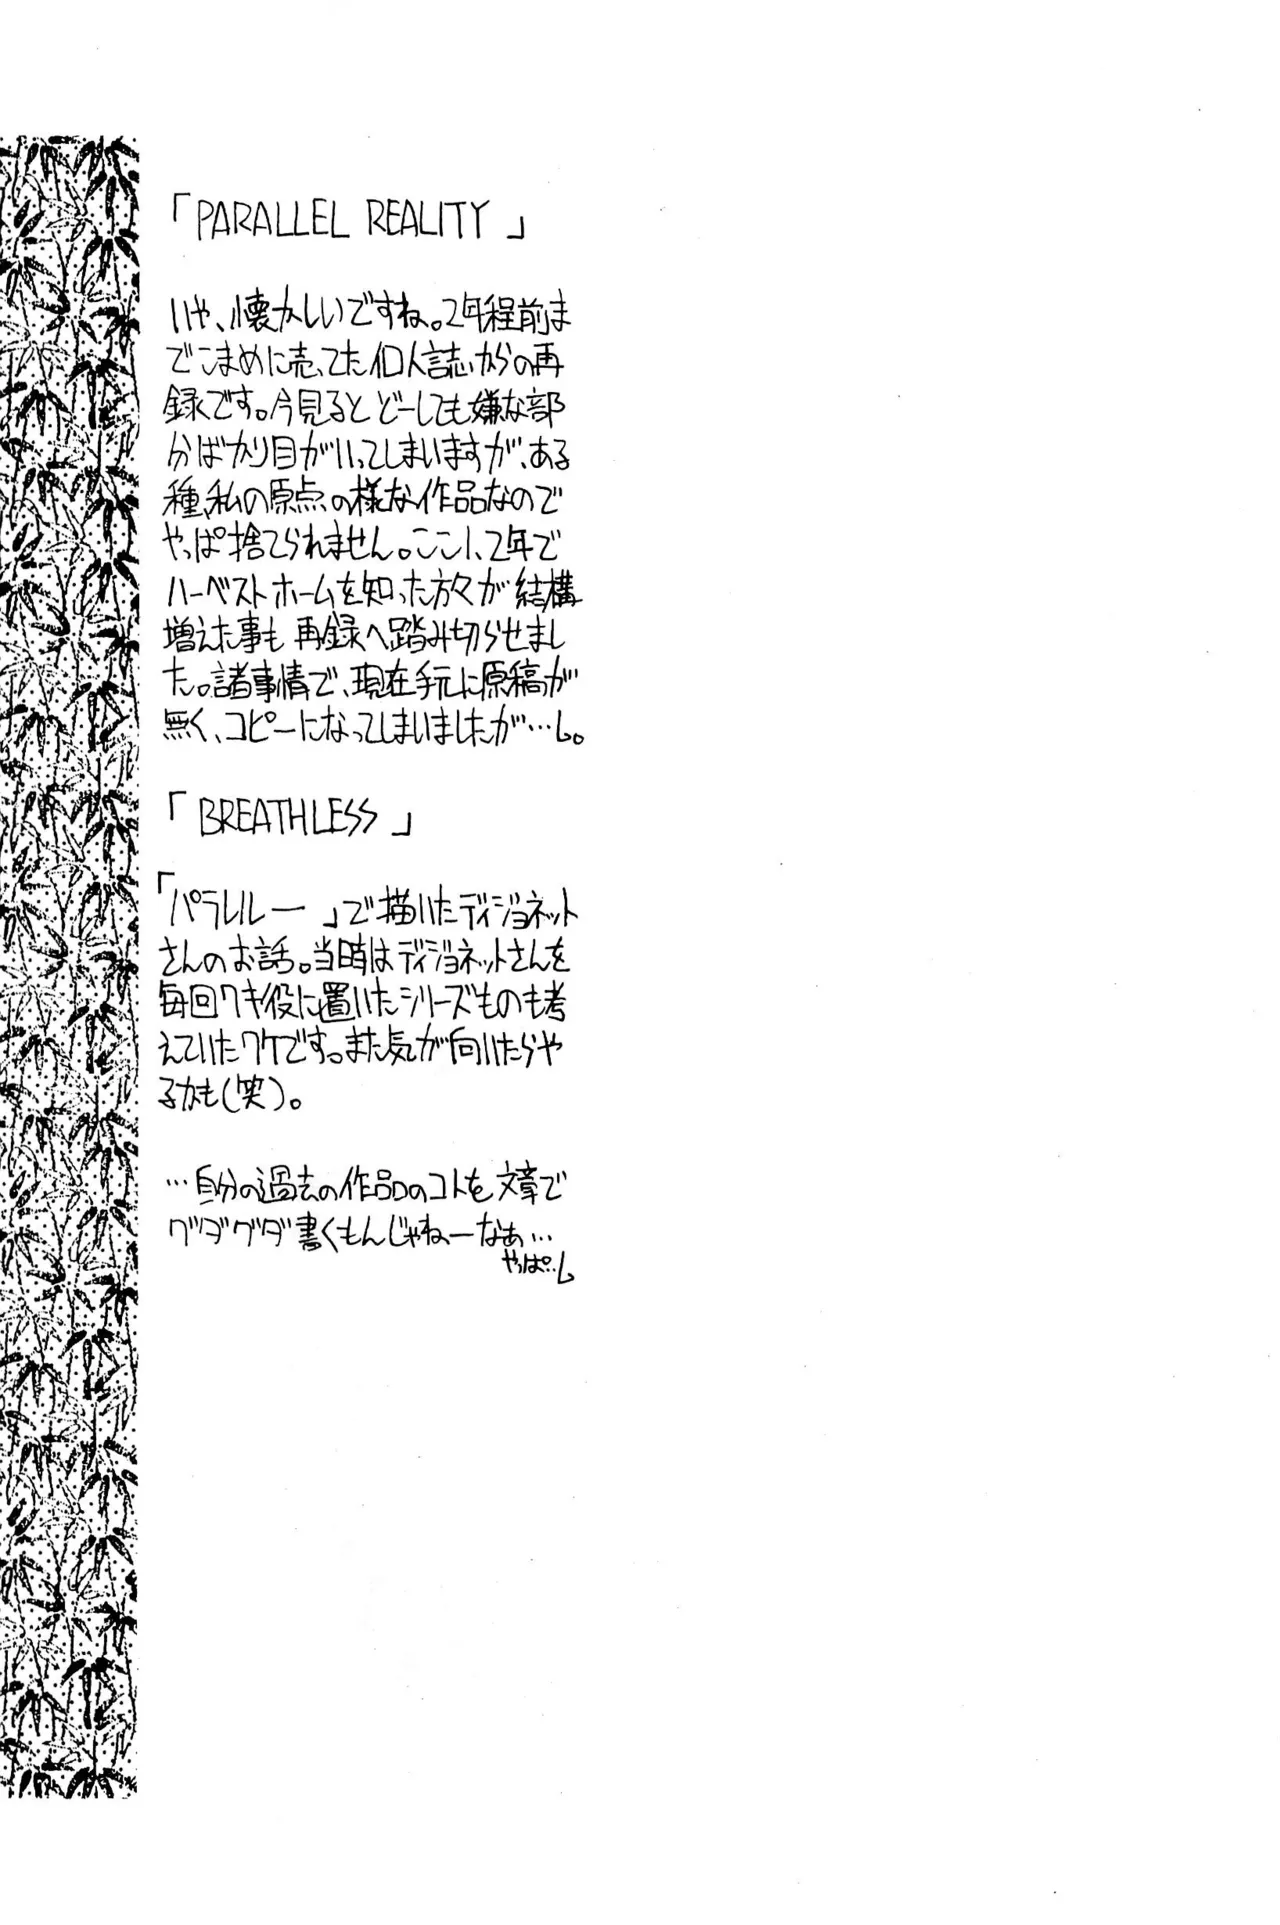 「PARALLEL REALITY」
いや、懐かしいですね。2年程前ま
でこまめに売ってた個人誌からの再
録です。今見るとどーしても嫌な部
分ばかり目がいってしまいますが、ある
種、私の原点の様な作品なので
やっぱ捨てられません。ここ1、2年で
ハーベストホームを知った方々が結構
増えた事も再録へ踏み切らせまし
た。諸事情で、現在手元に原稿が
無く、コピーになってしまいましたが…し。
「BREATHLESS」
「パラレルー」で描いたディジョネット
さんのお話。当時はディジョネットさんを
毎回ワキ役に置いたシリーズものも考
えていたワケです。また気が向いたらや
るかも(笑)。
…自分の過去の作品のコトを文章で
グダグダ書くもんじゃねーなぁ…
やっぱ…し